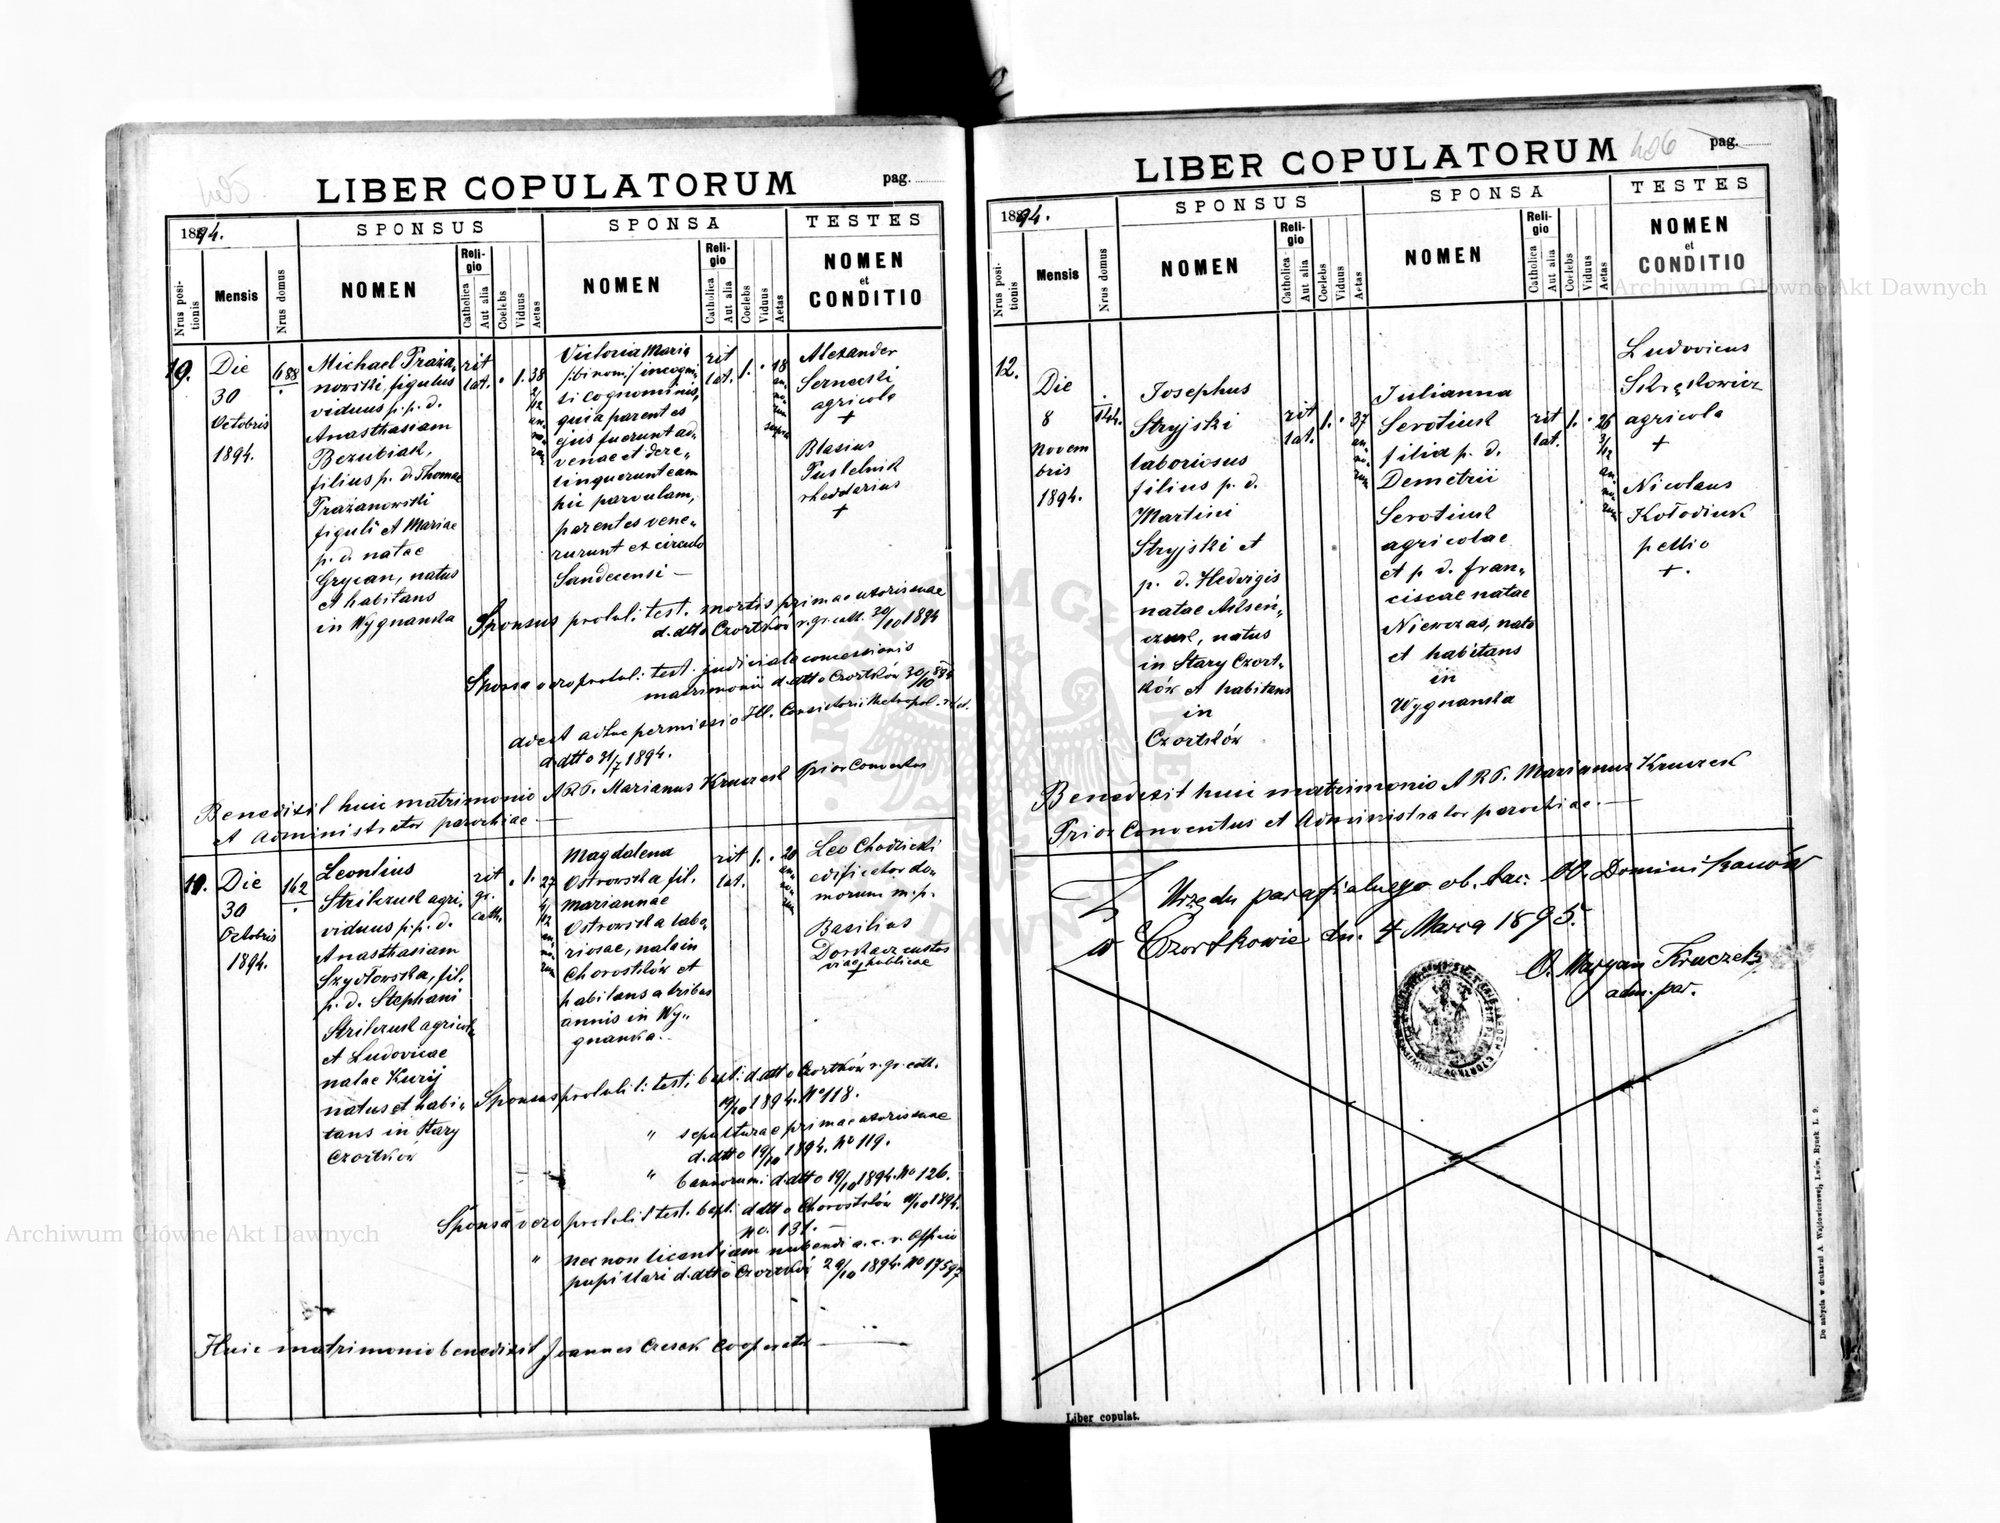 LIBER COPULATORUM
pag.
1894.
SPONSUS
SPONSA
TESTES
Nrus positionis
Mensis
Nrus domus
NOMEN
Religio
Catholica
Aut alia
Coelebs
Viduus
Aetas
NOMEN
Religio
Catholica
Aut alia
Coelebs
Viduus
Aetas
NOMEN
et
CONDITIO
Die
30
Octobris
1894.
688
Michael Praża,
nowski, figulus
viduus p. p. d.
Anasthasiam
Bezubiak,
filius p. d. Thomae
Prażanowski
figuli et Mariae
p. d. natae
Grycan, natus
et habitans
in Wygnanka
rit
lat.
1.
38
Victoria Maria
/:bi nom:/ incogni,
ti cognominis,
quia parentes
ejus fuerunt ad,,
venae et dere,,
linquerunt eam
hic parvulam,
parentes vene,,
rurunt ex circulo
Sandecensi —
rit
lat.
1.
18
an,
no,
rum
supra
Alexander
Sernecki
agricola
+
Blasius
Pustelnik
rhedarius
+
Sponsus protul: test. mortis primae uxoris suae
d. dtto Czortków r. gr. cath. 30/10 1894
Sponsa vero protul: test. judiciale concessionis
matrimonii d. dtto Czortków 30/10 894
adest adhuc permissio Ill. Consistorii Metropol. r. lat.
d. dtto 31/7 1894.
Benedixit huic matrimonio A. R. P. Marianus Kruczek Prior Conventus
et Administrator parochiae —
Die
30
Octobris
1894.
162
Leontius
Strilczuk agri,
viduus p. p. d.
Anasthasiam
Szydłowska, fil.
p. d. Stephani
Strilczuk agricol
et Ludovicae
natae Kurij
natus et habi,,
tans in Stary
Czortków
rit
gr.
cath.
1.
27
Magdalena
Ostrowska fil.
Mariannae
Ostrowska labo,
riosae, nata in
Chorostków et
habitans a tribus
annis in Wy,,
gnanka.
rit
lat.
1.
20
an,
no,
rum
Leo Chodzicki
edificator do,
morum m. p.
Basilius
Dorkacz custos
viae publicae
+
Sponsus protulit: test: bapt: d. dtto Czortków r. gr. cath.
19/10 1894. No 118.
" sepulturae primae uxoris suae
d. dtto 19/10 1894. No 119.
" bannorum: d. dtto 19/10 1894. No 126.
Sponsa vero protulit test. bapt: d. dtto Chorostków 11/10 1894.
No. 131. —
" nec non licentiam nubendi a. c. r. Officio
pupillari d. dtto Czortków 29/10 1894. No 17597
Huic matrimonio benedixit Joannes Czesak Cooperator —
LIBER COPULATORUM
406
pag.
1894.
SPONSUS
SPONSA
TESTES
Nrus positionis
Mensis
Nrus domus
NOMEN
Religio
Catholica
Aut alia
Coelebs
Viduus
Aetas
NOMEN
Religio
Catholica
Aut alia
Coelebs
Viduus
Aetas
NOMEN
et
CONDITIO
12.
Die
8
Novem
bris
1894.
144.
Josephus
Stryjski
laboriosus
filius p. d.
Martini
Stryjski et
p. d. Hedvigis
natus
in Stary Czort,,
ków et habitans
in
Czortków
rit
lat.
1.
37
an,
no,
rum
Julianna
Serotiuk
filia p. d.
Demetrii
Serotiuk
agricolae
et p. d. Fran,,
ciscae natae
Niewczas, nata
et habitans
in
Wygnanka
rit
lat.
1.
26
3/12
an,
no,
rum
Ludovicus
Skręłowicz
agricola
+
Nicolaus
Kołodiuk
pellio
+.
Benedixit huic matrimonio A R P. Marianus Kruczek
Prior Conventus et Administrator parochiae. —
Z Urzędu parafialnego ob. łac. OO. Dominikanów
w Czortkowie dn. 4 Marca 1895.
O. Maryan Kruczek
adm. par.
Liber copulat.
Do nabycia w drukarni A. Wajdowiczowej, Lwów, Rynek L. 9.
Archiwum Główne Akt Dawnych
Archiwum Główne Akt Dawnych
ARCHIWUM GŁÓWNE
DAWNYCH